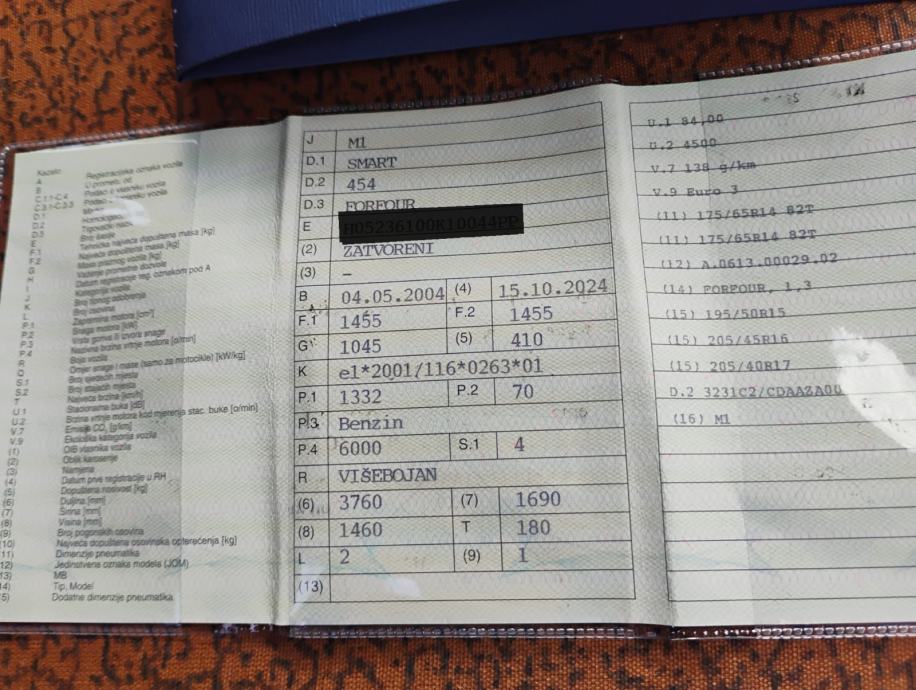 Kazalo
A Registracijska oznaka vozila
B U prometu od
C.1.1-C.4 Podaci o vlasniku vozila
C.3.1-C.3.3 Podaci korisniku vozila
D.1
D.2 Homologac
D.3 Trgovački naziv
E Broj šasije
F.1 Tehnička najveća dopuštena masa [kg]
F.2 Najveća dopuštena masa [kg]
G Masa praznog vozila [kg]
H Važenje prometne dozvole
I Datum registracije reg. oznakom pod A
J Kategorija vozila
K Broj tipnog odobrenja
L Broj osovina
P.1 Zapremina motora [cm³]
P.2 Snaga motora [kW]
P.3 Vrsta goriva ili izvora snage
P.4 Nazivna brzina vrtnje motora [o/min]
R Boja vozila
Q Omjer snage i mase (samo za motocikle) [kW/kg]
S.1 Broj sjedećih mjesta
S.2 Broj stajaćih mjesta
T Najveća brzina [km/h]
U.1 Stacionarna buka [dB]
U.2 Brzina vrtnje motora kod mjerenja stac. buke [o/min]
V.7 Emisije CO₂ [g/km]
V.9 Ekološka kategorija vozila
(1) OIB vlasnika vozila
(2) Oblik karoserije
(3) Namjena
(4) Datum prve registracije u RH
(5) Dopuštena nosivost [kg]
(6) Duljina [mm]
(7) Širina [mm]
(8) Visina [mm]
(9) Broj pogonskih osovina
(10) Najveća dopuštena osovinska opterećenja [kg]
(11) Dimenzije pneumatika
(12) Jedinstvena oznaka modela (JOM)
(13) MB
(14) Tip, Model
(15) Dodatne dimenzije pneumatika
J M1
D.1 SMART
D.2 454
D.3 FORFOUR
E
(2) ZATVORENI
(3) –
B 04.05.2004 (4) 15.10.2024
F.1 1455 F.2 1455
G 1045 (5) 410
K e1*2001/116*0263*01
P.1 1332 P.2 70
P.3 Benzin
P.4 6000 S.1 4
R VIŠEBOJAN
(6) 3760 (7) 1690
(8) 1460 T 180
L 2 (9) 1
(13)
U.1 84,00
U.2 4500
V.7 138 g/km
V.9 Euro 3
(11) 175/65R14 82T
(11) 175/65R14 82T
(12) A.0613.00029.02
(14) FORFOUR, 1,3
(15) 195/50R15
(15) 205/45R16
(15) 205/40R17
D.2 3231C2/CDAAZA00
(16) M1